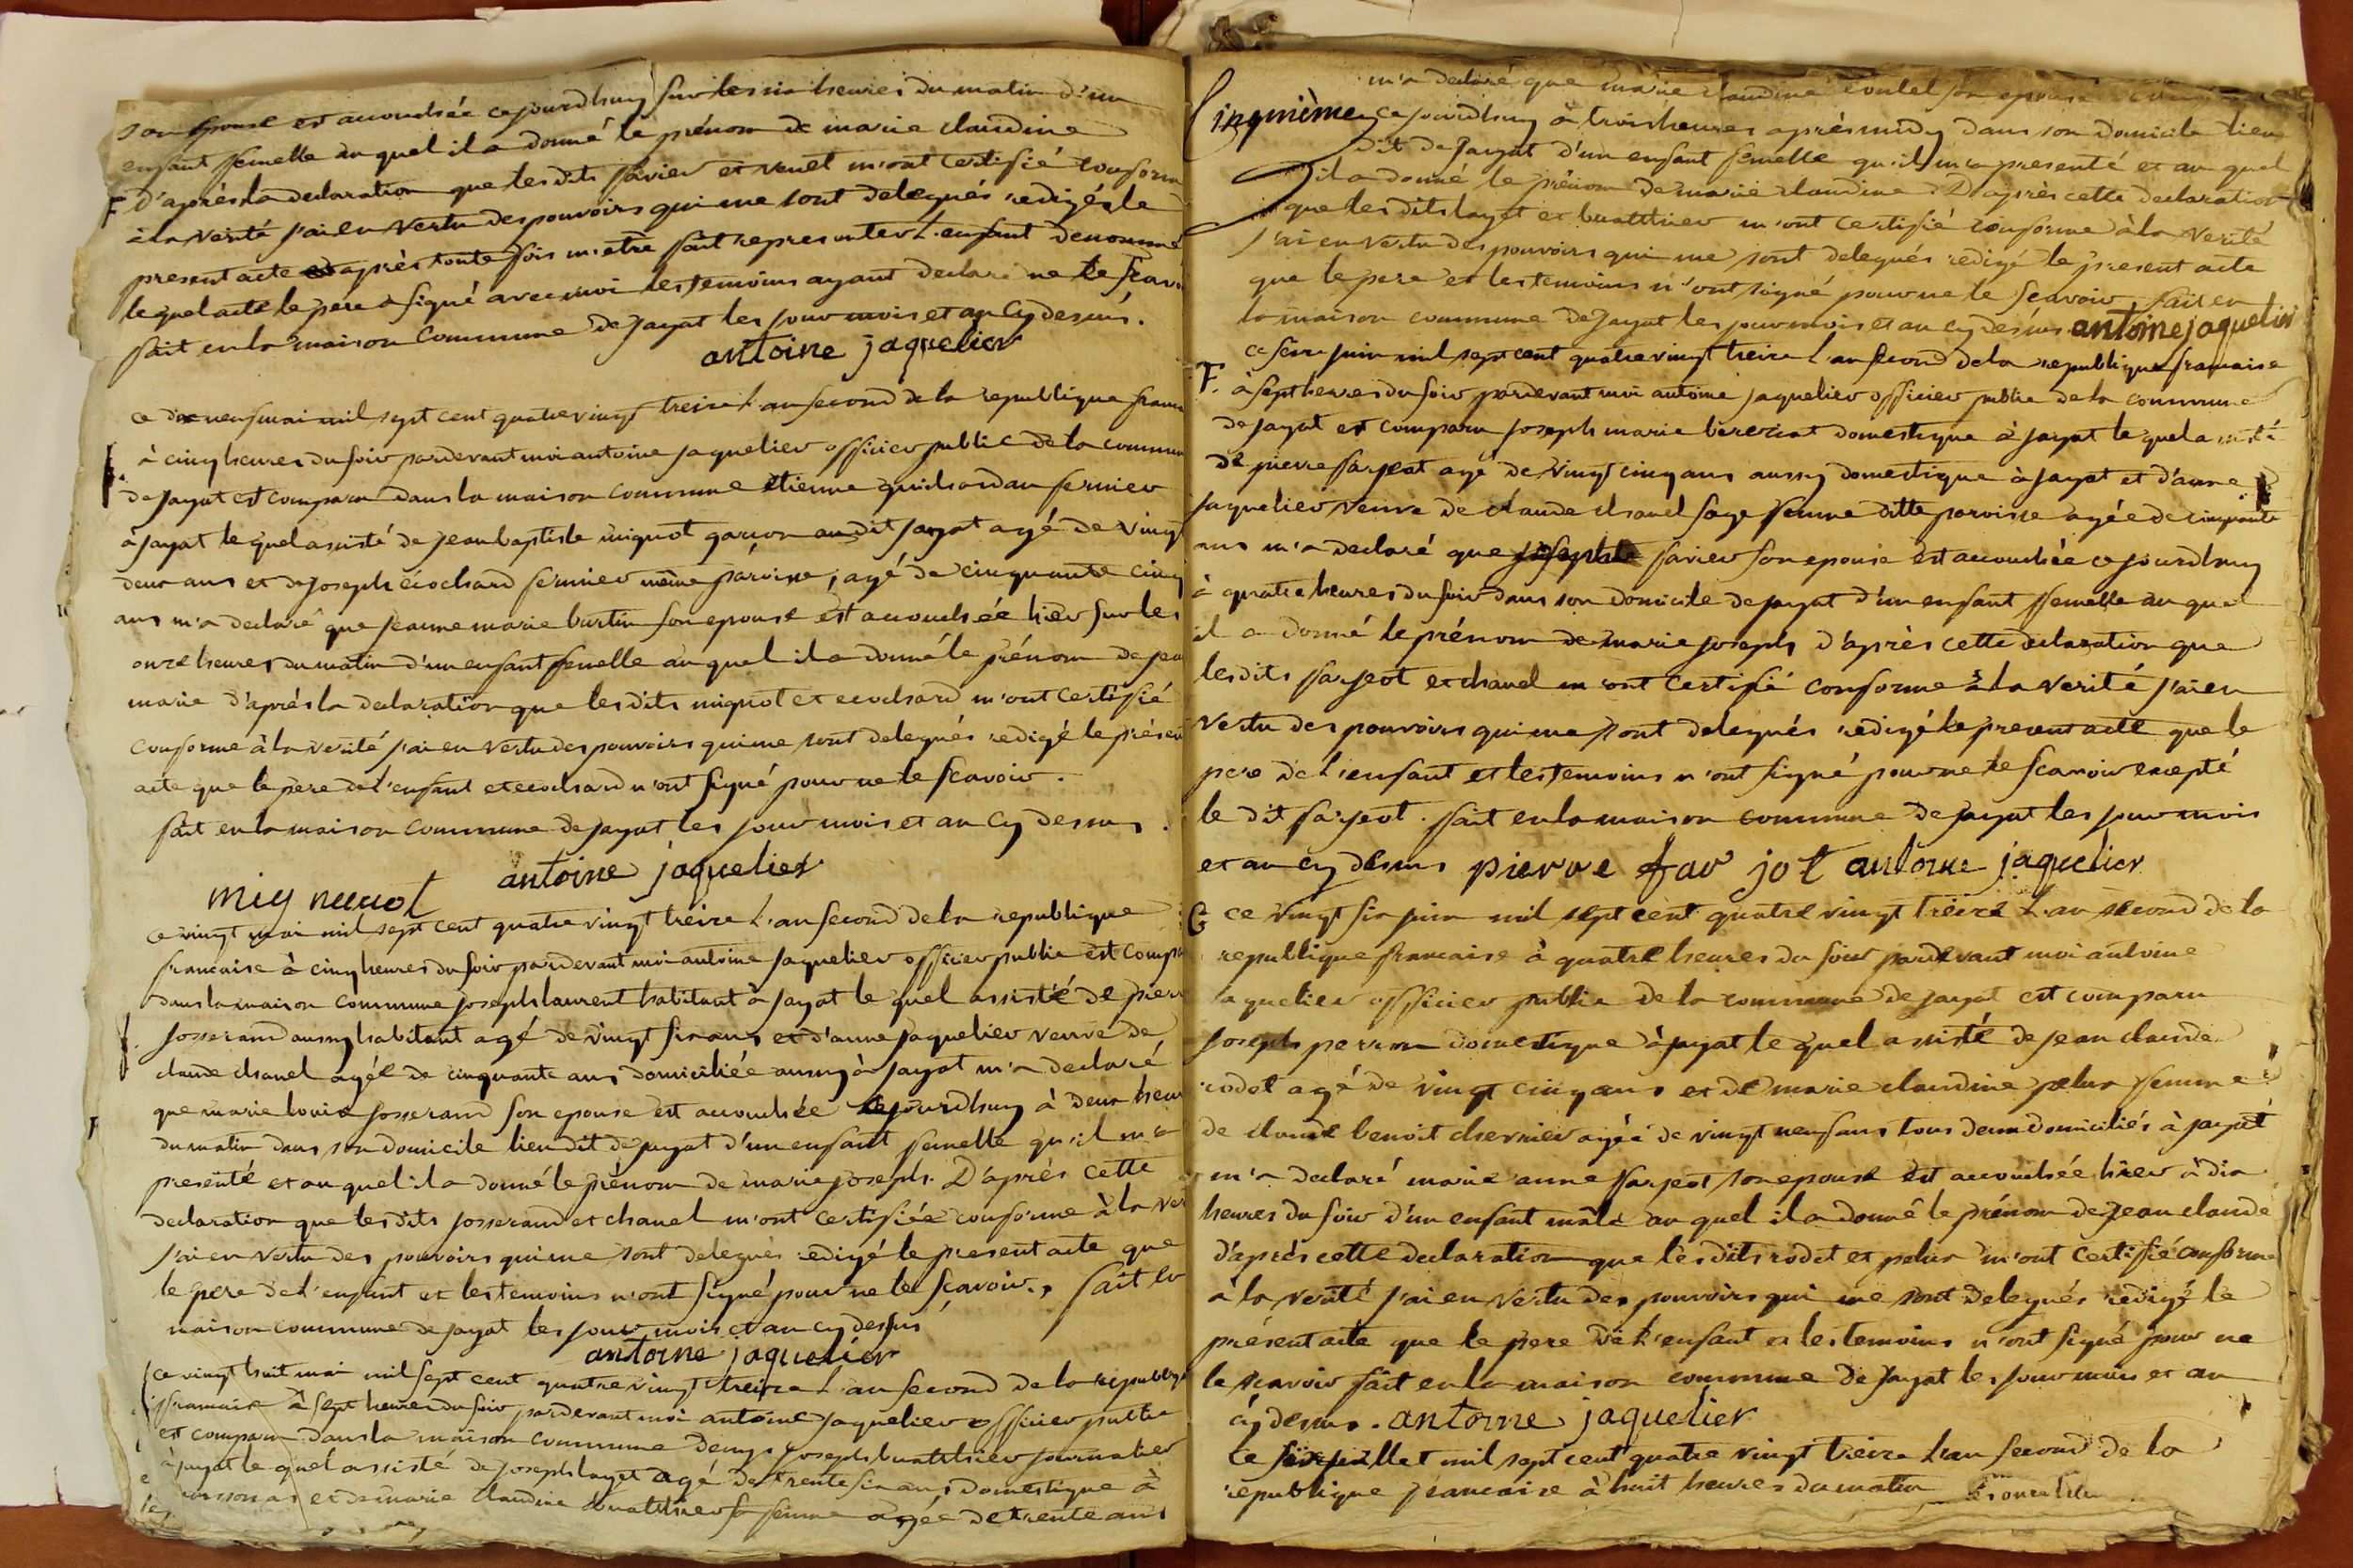 son epouse est accouchée cejourdhuy sur les six heures du matin d'un
enfant femelle au quel il a donné le prénom de marie claudine
F d'après la declaration que les dits favier et venet m'ont certifié conforme
à la verité j'ai en vertu des pouvoirs qui me sont delegués redigé le
present acte après toute fois m'etre fait representer l'enfant denommé
le quel acte le pere a signé avec moi les temoins ayant declaré ne le scav
fait en la maison commune de jayat les jour mois et an cy dessus.
antoine jaquelier
ce dix neuf mai mil sept cent quatre vingt treize l'an second de la republique franc
à cinq heures du soir pardevant moi antoine jaquelier officier public de la commun
de jayat est comparu dans la maison commune etienne guichardan fermier
à jayat le quel assisté de jean baptiste mignot garçon au dit jayat agé de vingt
deux ans et de joseph ecochard fermier même paroisse, agé de cinquante cinq
ans m'a declaré que jeanne marie burtin son epouse est accouchée hier sur les
onze heures du matin d'un enfant femelle au quel il a donné le prénom de jea
marie d'après la declaration que les dits mignot et ecochard m'ont certifié
conforme à la verité j'ai en vertu des pouvoirs qui me sont delegués redigé le présen
acte que le pere de l'enfant et ecochard n'ont signé pour ne le scavoir.
fait en la maison commune de jayat les jour mois et an cy dessus.
antoine jaquelier
ce vingt mai mil sept cent quatre vingt treize l'an second de la republique
francaise à cinq heures du soir pardevant moi antoine jaquelier officier public est compa
dans la maison commune joseph laurent habitant à jayat le quel assisté de pierr
f. josserand aussy habitant agé de vingt six ans et d'anne jaquelier veuve de
claude chanel agée de cinquante ans domiciliée aussy à jayat m'a declaré
que marie louise josserand son epouse est accouchée cejourdhuy à deux heur
du matin dans son domicile lieu dit de jayat d'un enfant femelle qu'il m'a
presenté et au quel il a donné le prénom de marie joseph. D'après cette
declaration que les dits josserand et chanel m'ont certifiée conforme à la ver
j'ai en vertu des pouvoirs qui me sont delegués redigé le present acte que
le pere de l'enfant et les temoins n'ont signé pour ne le scavoir, fait en
maison commune de jayat les jour mois et an cy dessus
antoine jaquelier
ce vingt huit mai mil sept cent quatre vingt treize l'an second de la republiq
francaise à sept heures du soir pardevant moi antoine jaquelier officier public
est comparu dans la maison commune denys joseph buatthier journalier
à jayat le quel assisté de joseph layet agé de trente six ans domestique à
et de marie claudine buatthier sa femme agée de trente ans
m'a declaré que marie claudine son epouse
Cinquième ce jourdhuy à trois heures après midy dans son domicile lieu
dit de jayat d'un enfant femelle qu'il m'a presenté et au quel
il a donné le prénom de marie claudine D'après cette declaration
que les dits layet et buatthier m'ont certifié conforme à la verité
j'ai en vertu des pouvoirs qui me sont delegués redigé le present acte
que le pere et les temoins n'ont signé pour ne le scavoir, fait en
la maison commune de jayat les jour mois et an cy dessus antoine jaquelier
ce juin mil sept cent quatre vingt treize l'an second de la republique francaise
F. à sept heures du soir pardevant moi antoine jaquelier officier public de la commune
de jayat est comparu joseph marie domestique à jayat le quel assisté
de pierre farjeot agé de vingt cinq ans aussy domestique à jayat et d'anne
jaquelier veuve de claude chanel sage femme ditte paroisse agée de cinquante
ans m'a declaré que josephte favier son epouse est accouchée cejourdhuy
à quatre heures du soir dans son domicile de jayat d'un enfant femelle au quel
il a donné le prénom de marie joseph d'après cette declaration que
les dits farjeot et chanel m'ont certifié conforme à la verité j'ai en
vertu des pouvoirs qui me sont delegués redigé le present acte que le
pere de l'enfant et les temoins n'ont signé pour ne le scavoir excepté
le dit farjeot. fait en la maison commune de jayat les jour mois
et an cy dessus pierre far jot antoine jaquelier
G ce vingt six juin mil sept cent quatre vingt treize l'an second de la
republique francaise à quatre heures du soir pardevant moi antoine
jaquelier officier public de la commune de jayat est comparu
joseph perrin domestique à jayat le quel assisté de jean claude
rodet agé de vingt cinq ans et de marie claudine pelux femme
de claude benoit chernier agée de vingt neuf ans tous deux domiciliés à jayat
m'a declaré marie anne farjeot son epouse est accouchée hier à dix
heures du soir d'un enfant mâle au quel il a donné le prénom de jean claude
d'après cette declaration que les dits rodet et pelux m'ont certifié conforme
à la verité j'ai en vertu des pouvoirs qui me sont delegués redigé le
présent acte que le pere de l'enfant et les temoins n'ont signé pour ne
le scavoir fait en la maison commune de jayat les jour mois et an
cy dessus. antoine jaquelier
ce six juillet mil sept cent quatre vingt treize l'an second de la
republique francaise à huit heures du matin